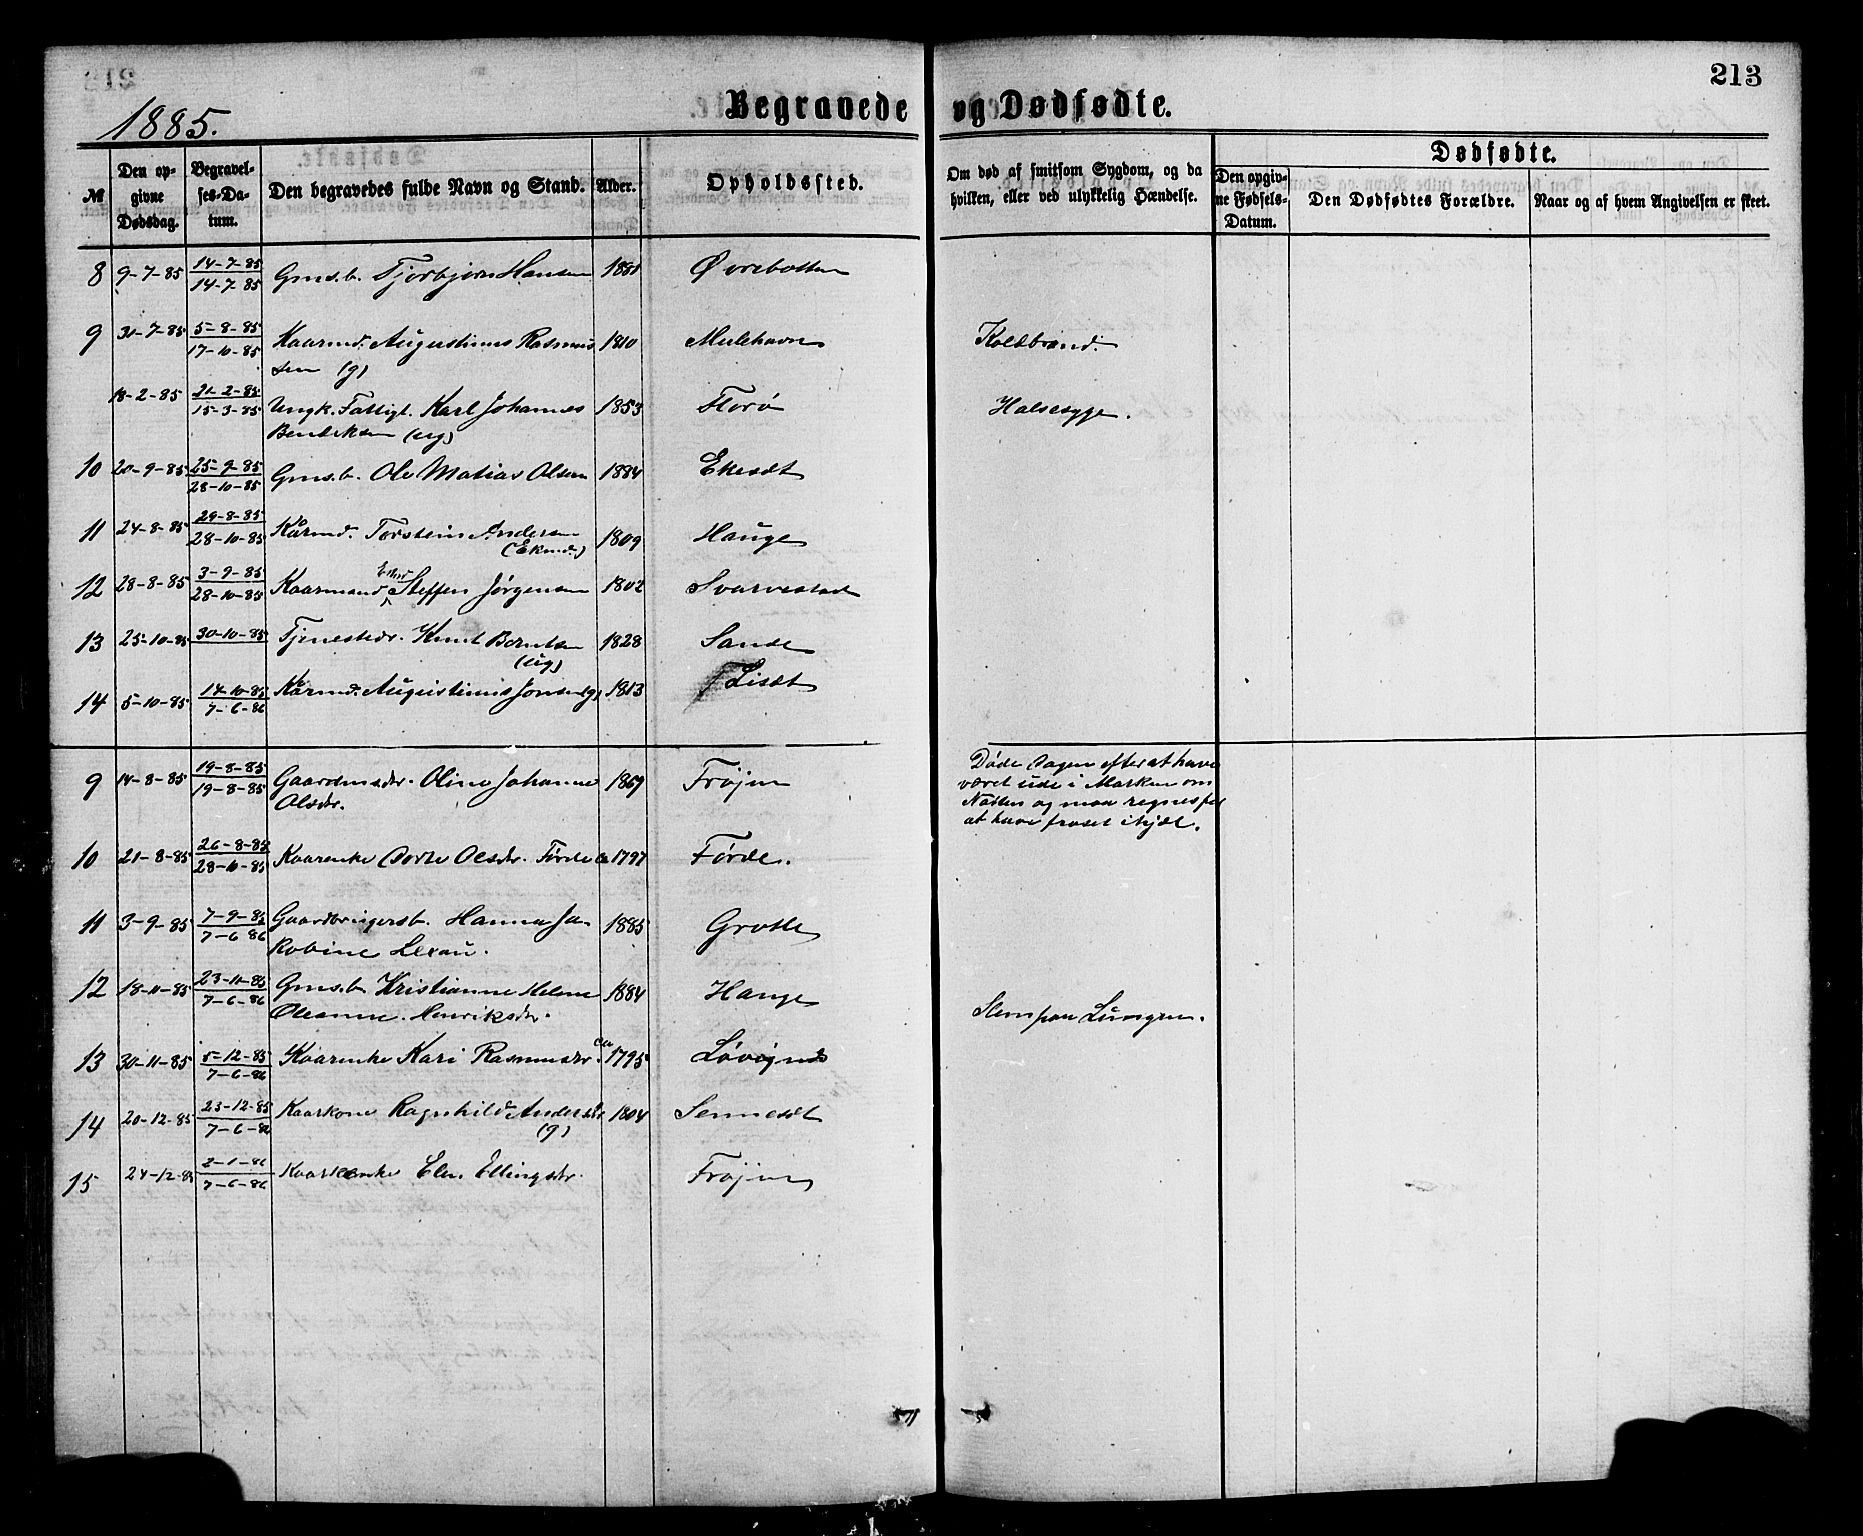 213
1885.
Begravede og Dødfødte.
№ Den opgivne Dødsdag. Begravelses-Datum. Den begravedes fulde Navn og Stand. Alder. Opholdssted. Om død af smitsom Sygdom, og da hvilken, eller ved ulykkelig Hændelse. Dødfødte.
Den opgivne Fødsels-Datum. Den Dødfødtes Forældre. Naar og af hvem Angivelsen er skeet.
8 9-7-85 14-7-85 Gms.b. Tjorbjørn Hansen Øvrebotten
14-7-85
9 31-7-85 5-8-85 Kaarmd. Augustinus Rasmus 1810 Mulehavn Koldbrand.
17-10-85
sen (g)
18-2-85 21-2-85 Ungk. Fattigl. Karl Johannes 1853 Florø Halsesyge.
15-3-85
Bendiksen (ug)
10 20-9-85 25-9-85 Gms.b. Ole Matias Olsen 1884 Ekesdt
28-10-85
11 24-8-85 29-8-85 Kårmd. Torstein Andersen 1809 Hauge
28-10-85 (Ekmd.)
12 28-8-85 3-9-85 Kaarmand Steffen Jørgensen 1802 Svarvestad
28-10-85
13 25-10-85 30-10-85 Tjenestedr. Knut Berntsen 1828 Sande
(ug)
14 5-10-85 14-10-85 Kårmd. Augustinus Jonsen (g) 1813 Lisæt
7-6-86
9 14-8-85 19-8-85 Gaardmsdtr. Oline Johanne 1869 Frøjen Døde Dagen efter at have
19-8-85 været ude i Marken om
Olsdtr. Natten og maa regnes for
at have froset ihjel.
10 21-8-85 26-8-85 Kaarenke Dorte Olsdtr. Førde Ca 1797 Førde.
28-10-85
11 3-9-85 7-9-85 Gaardbrugersb. Hanna Ja- 1885 Grotle
7-6 86
kobine Lexau.
12 18-11-85 23-11-85 Gms.b. Kristianne Helene 1884 Hauge
7-6-86
Oleanne Henriksdtr. Slem paa Lungen.
13 30-11-85 5-12-85 Kaarenke Kari Rasmusdtr Ca 1795 Løvøjnd
7-6-86
14 20-12-85 23-12-85 Kaarkone Ragnhild Andersdtr 1804 Sennesdt
7-6-86 (g)
15 24-12-85 2-1-86 Kaarenke Elen Ellingsdtr. Frøjen
7-6-86